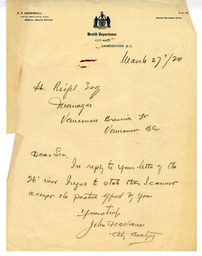 F. T. UNDERHILL
MEDICAL HEALTH OFFICER
Health Department
CITY HALL
VANCOUVER, B.C.
March 27th/20
H. Reifel Esq
Manager
Vancouver Breweries Ld
Vancouver BC
Dear Sir,
In reply to your letter of the
26th inst I regret to state that I cannot
accept the position offered by you
Yours truly,
City Analyst